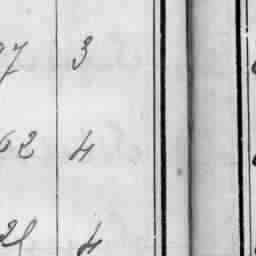 97 3
62 4
21 4